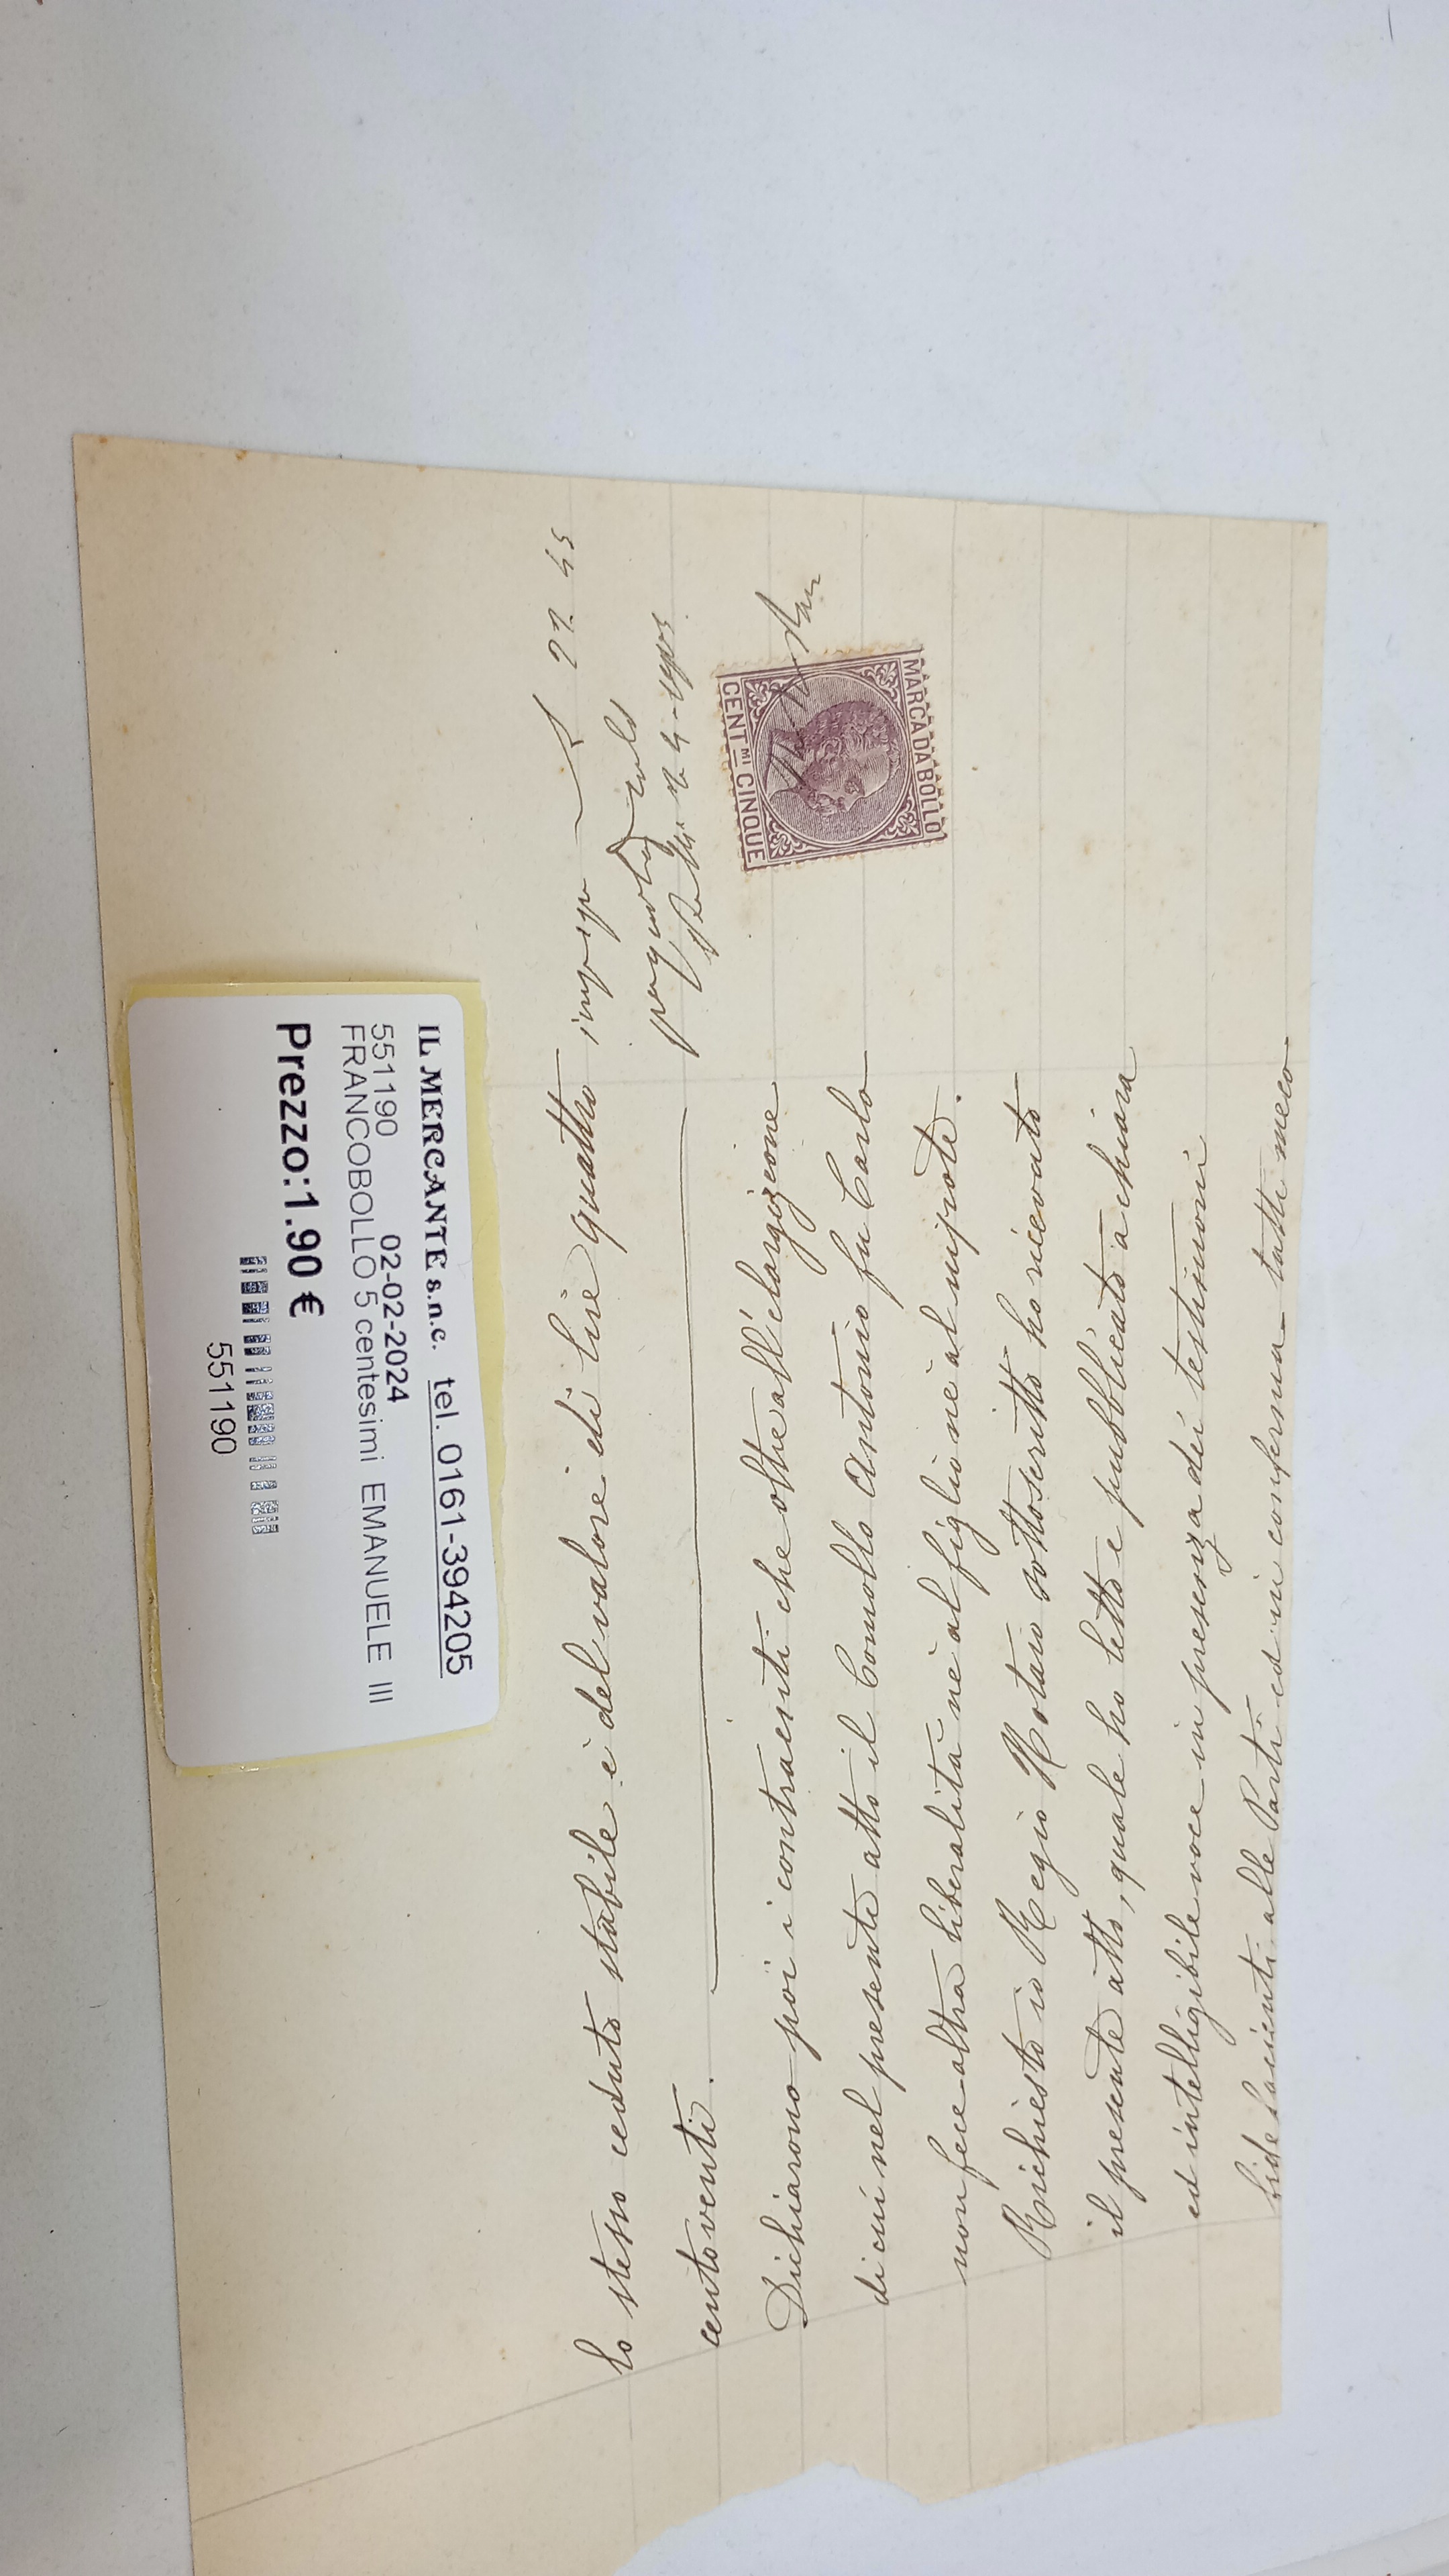 lo stesso ceduto stabile è del valore di lire quattro
centoventi.
Dichiarono poi i contraenti che oltre all'elargizione
di cui nel presente atto il Comollo Antonio fu Carlo
non fece altra liberalità nè al figlio nè al nipote.
Richiesto io Regio Notaio sottoscritto ho ricevuto
il presente atto, quale ho letto e pubblicato a chiara
ed intelligibile voce in presenza dei testimoni
fidefacienti alle Parti ed in conferma tutti meco
27 45
MARCA DA BOLLO
CENT.MI CINQUE
IL MERCANTE s.n.c. tel. 0161-394205
551190 02-02-2024
FRANCOBOLLO 5 centesimi EMANUELE III
Prezzo:1.90 €
551190